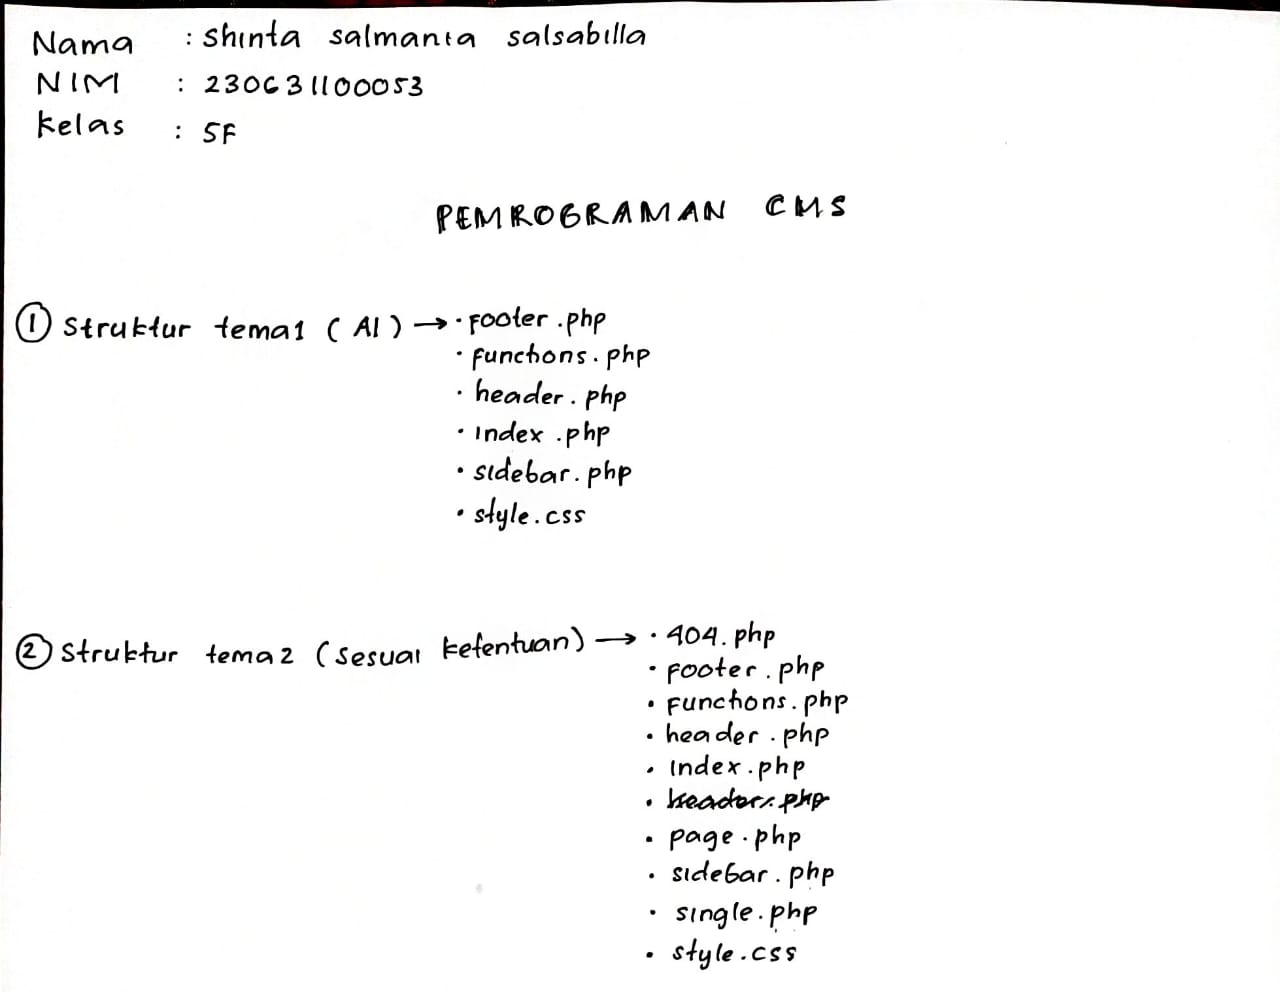 Nama : Shinta salmania salsabilla
NIM : 230631100053
Kelas : 5F
PEMROGRAMAN CMS
① Struktur tema1 (AI) → • Footer.php
• functions.php
• header.php
• Index.php
• sidebar.php
• style.css
② Struktur tema2 (Sesuai ketentuan) → • 404.php
• Footer.php
• Functions.php
• header.php
• Index.php
• header.php
• page.php
• sidebar.php
• single.php
• style.css